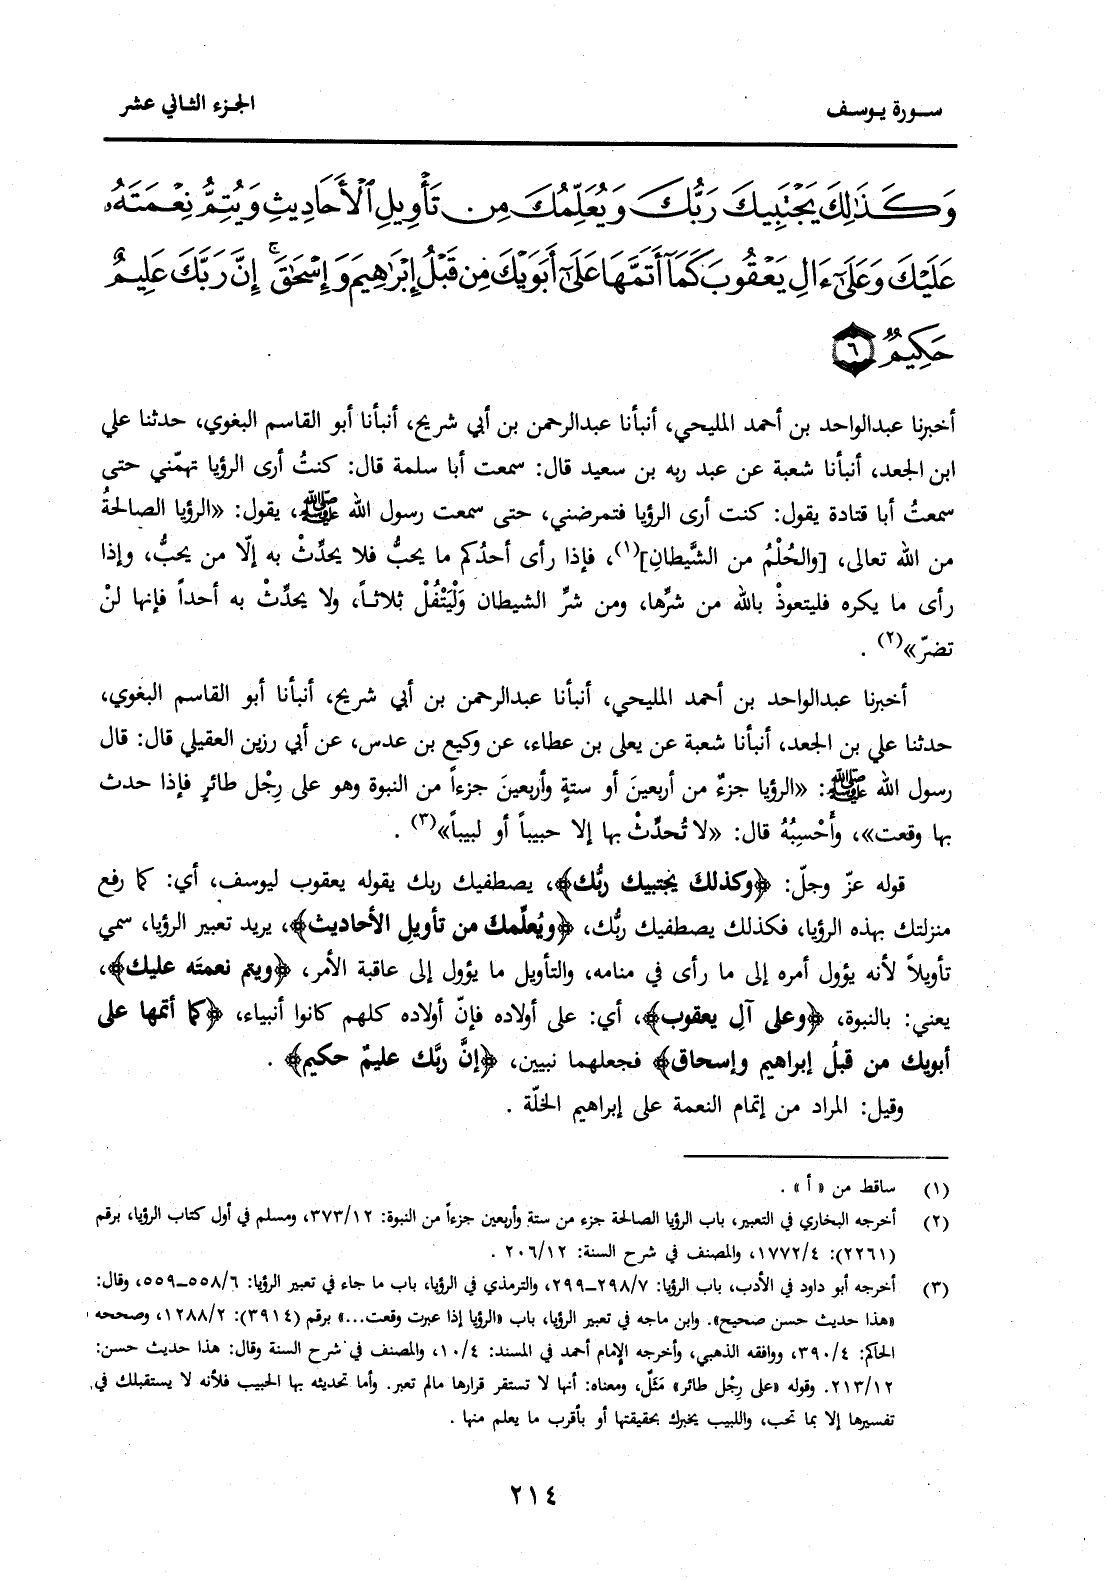 سورة يوسف
الجزء الثاني عشر
وَكَذَٰلِكَ يَجْتَبِيكَ رَبُّكَ وَيُعَلِّمُكَ مِن تَأْوِيلِ ٱلْأَحَادِيثِ وَيُتِمُّ نِعْمَتَهُۥ
عَلَيْكَ وَعَلَىٰٓ ءَالِ يَعْقُوبَ كَمَآ أَتَمَّهَا عَلَىٰٓ أَبَوَيْكَ مِن قَبْلُ إِبْرَٰهِيمَ وَإِسْحَٰقَ ۚ إِنَّ رَبَّكَ عَلِيمٌ
حَكِيمٌ ٦
أخبرنا عبدالواحد بن أحمد المليحي، أنبأنا عبدالرحمن بن أبي شريح، أنبأنا أبو القاسم البغوي، حدثنا علي
ابن الجعد، أنبأنا شعبة عن عبد ربه بن سعيد قال: سمعت أبا سلمة قال: كنتُ أرى الرؤيا تهمّني حتى
سمعتُ أبا قتادة يقول: كنت أرى الرؤيا فتمرضني، حتى سمعت رسول الله ﷺ، يقول: «الرؤيا الصالحةُ
من الله تعالى، [والحُلْمُ من الشَّيطانِ](١)، فإذا رأى أحدُكم ما يحبُّ فلا يحدِّثْ به إلّا من يحبُّ، وإذا
رأى ما يكره فليتعوذْ بالله من شرِّها، ومن شرِّ الشيطان وَلْيَتْفُلْ ثلاثاً، ولا يحدِّثْ به أحداً فإنها لنْ
تضرّ»(٢) .
أخبرنا عبدالواحد بن أحمد المليحي، أنبأنا عبدالرحمن بن أبي شريح، أنبأنا أبو القاسم البغوي،
حدثنا علي بن الجعد، أنبأنا شعبة عن يعلى بن عطاء، عن وكيع بن عدس، عن أبي رزين العقيلي قال: قال
رسول الله ﷺ: «الرؤيا جزءٌ من أربعينَ أو ستةٍ وأربعينَ جزءاً من النبوة وهو على رِجْل طائرٍ فإذا حدث
بها وقعت»، وأَحْسِبُهُ قال: «لا تُحدِّثْ بها إلا حبيباً أو لبيباً»(٣) .
قوله عزّ وجلّ: ﴿وكذلك يجتبيك ربُّك﴾، يصطفيك ربك يقوله يعقوب ليوسف، أي: كما رفع
منزلتك بهذه الرؤيا، فكذلك يصطفيك ربُّك، ﴿ويُعلِّمك من تأويلِ الأحاديث﴾، يريد تعبير الرؤيا، سمي
تأويلاً لأنه يؤول أمره إلى ما رأى في منامه، والتأويل ما يؤول إلى عاقبة الأمر، ﴿ويتم نعمتَه عليك﴾،
يعني: بالنبوة، ﴿وعلى آلِ يعقوب﴾، أي: على أولاده فإنّ أولاده كلهم كانوا أنبياء، ﴿كما أتمها على
أبويك من قبلُ إبراهيم وإسحاق﴾ فجعلهما نبيين، ﴿إنَّ ربَّك عليمٌ حكيم﴾ .
وقيل: المراد من إتمام النعمة على إبراهيم الخلّة .
(١) ساقط من « أ » .
(٢) أخرجه البخاري في التعبير، باب الرؤيا الصالحة جزء من ستة وأربعين جزءاً من النبوة: ٣٧٣/١٢، ومسلم في أول كتاب الرؤيا، برقم
(٢٢٦١): ١٧٧٢/٤، والمصنف في شرح السنة: ٢٠٦/١٢ .
(٣) أخرجه أبو داود في الأدب، باب الرؤيا: ٢٩٨/٧_٢٩٩، والترمذي في الرؤيا، باب ما جاء في تعبير الرؤيا: ٥٥٨/٦_٥٥٩، وقال:
«هذا حديث حسن صحيح». وابن ماجه في تعبير الرؤيا، باب «الرؤيا إذا عبرت وقعت...» برقم (٣٩١٤): ١٢٨٨/٢، وصححه
الحاكم: ٣٩٠/٤، ووافقه الذهبي، وأخرجه الإمام أحمد في المسند: ١٠/٤، والمصنف في شرح السنة وقال: هذا حديث حسن:
٢١٣/١٢. وقوله «على رِجْل طائر» مَثَلٌ، ومعناه: أنها لا تستقر قرارها مالم تعبر. وأما تحديثه بها الحبيب فلأنه لا يستقبلك في
تفسيرها إلا بما تحب، واللبيب يخبرك بحقيقتها أو بأقرب ما يعلم منها .
٢١٤